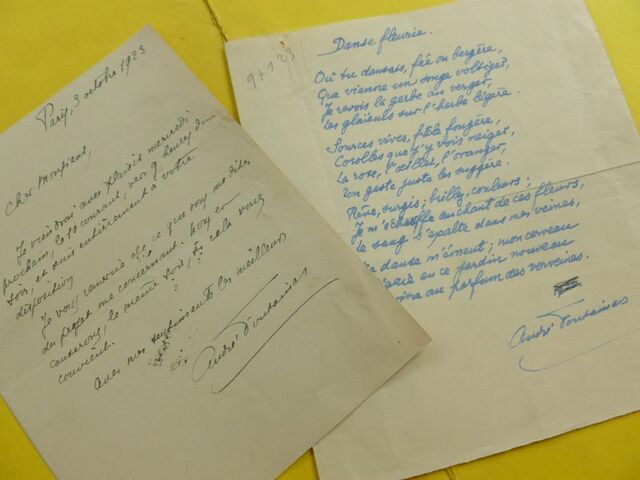 Paris, 3 octobre 1923
Cher Monsieur,
Je viendrai avec plaisir mercredi
prochain, le 10 courant, vers 9 heures du
soir, et suis entièrement à votre
disposition
Je vous remercie de ce que vous me dites
du projet me concernant. Nous en
causerons, le même soir, si cela vous
convient.
Avec mes sentiments les meilleurs
André Fontainas
Danse fleurie.
Où tu dansais, fée ou bergère,
Que vienne un songe voltiger,
Je revois la gerbe au verger,
Les glaïeuls sur l'herbe légère.
Sources vives, frêle fougère,
Corolles que j'y vois neiger,
La rose, l'œillet, l'oranger,
Ton geste juste les suggère.
Rêve, surgis; brillez, couleurs;
Je m'échauffe au chant de ces fleurs,
Le sang s'exalte dans mes veines,
danse m'émeut; mon cerveau
en ce jardin nouveau
au parfum des verveines.
André Fontainas